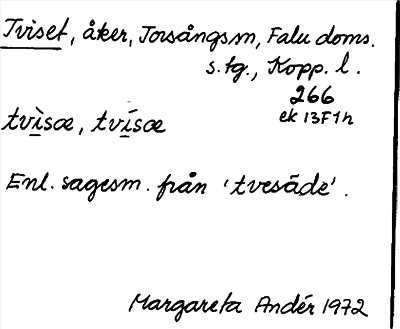 Tviset, åker, Torsångs sn, Falu doms.
s. tg., Kopp. l.
266
ek 13F1h
tvìsæ, tvísæ
Enl. sagesm. från 'tvesäde'.
Margareta Andér 1972